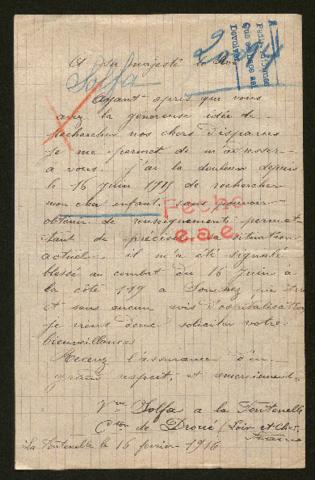 A sa majesté le Roi
Solfa
Ayant apris que vous
avez la genereuse idée de
rechercher nos chers disparus
je me permet de m'adresser
à vous. J'ai la douleur depuis
le 16 Juin 1915 de rechercher
mon cher enfant sans pouvoir
obtenir de renseignements permet
tant de préciser sa situation
actuel. il m'a été signalé
blessé au combat du 16 Juin à
la côté 119 à Souchez
et sans aucun avis d'ospitalisation
je viens donc solliciter votre
bienveillance
Recevez l'assurance d'un
grand respect, et remerciements
Solfa a la Fontenelle
Cton de Droué (Loir et Cher
La Fontenelle le 16 fevrier 1916
Fecho
e.a.e.